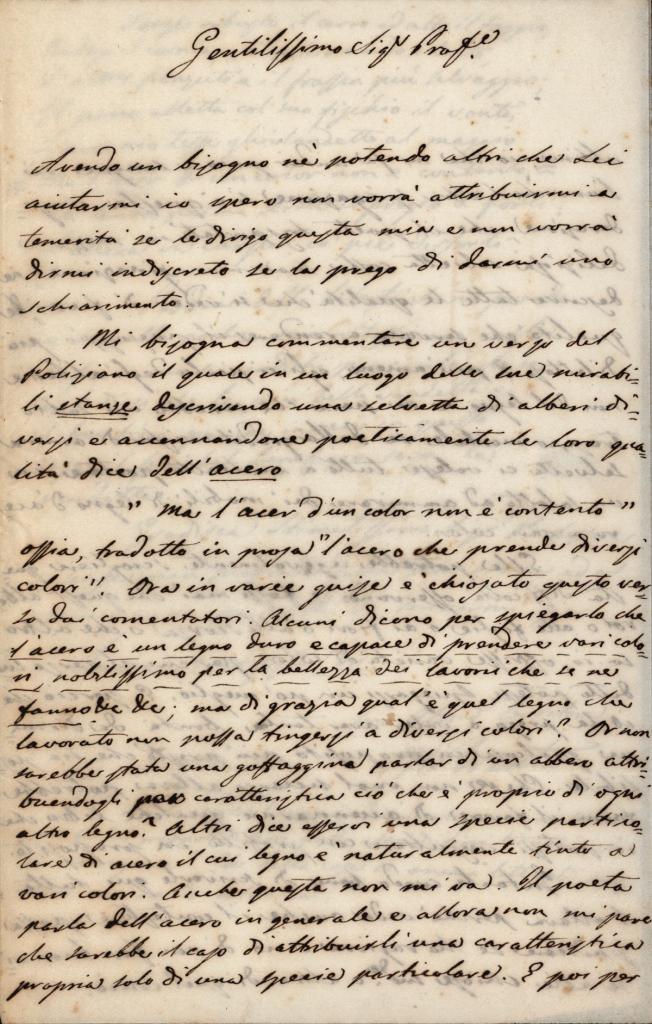 Gentilissimo Sigr Profe.
Avendo un bisogno nè potendo altri che Lei
aiutarmi io spero non vorrà attribuirmi a
temerità se le dirigo questa mia e non vorrà
dirmi indiscreto se la prego di darmi uno
schiarimento.
Mi bisogna commentare un verso del
Poliziano il quale in un luogo delle sue mirabi-
li stanze descrivendo una selvetta di alberi di-
versi e accennandone poeticamente le loro qua-
lità dice dell'acero
" Ma l'acer d'un color non è contento "
ossia, tradotto in prosa "l'acero che prende diversi
colori". Ora in varie guise e' chiosato questo ver-
so dai comentatori. Alcuni dicono per spiegarlo che
l'acero è un legno duro e capace di prendere vari colo-
ri, nobilissimo per la bellezza dei lavorii che se ne
fanno &c &c; ma di grazia qual'è quel legno che
lavorato non possa tingersi a diversi colori? Or non
sarebbe stata una goffaggine parlar di un albero attri-
buendogli per caratteristica ciò che è proprio di ogni
altro legno? Altri dice esservi una specie partico-
lare di acero il cui legno è naturalmente tinto a
vari colori. Anche questa non mi va. Il poeta
parla dell'acero in generale e allora non mi pare
che sarebbe il caso di attribuirli una caratteristica
propria solo di una specie particolare. E poi per